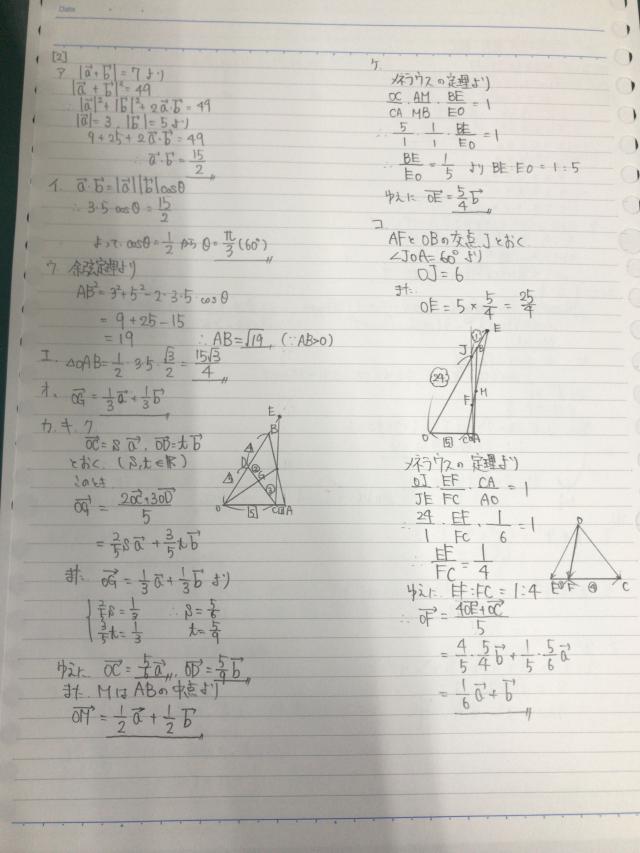 Date
[2]
ア |a⃗+b⃗| = 7 より
|a⃗+b⃗|² = 49
|a⃗|²+|b⃗|²+2a⃗·b⃗ = 49
|a⃗|=3, |b⃗|=5より
9+25+2a⃗·b⃗=49
∴ a⃗·b⃗ = 15/2
イ. a⃗·b⃗=|a⃗||b⃗|cosθ
∴ 3·5 cosθ = 15/2
よって cosθ = 1/2 から θ = π/3 (60°)
ウ 余弦定理より
AB² = 3²+5²-2·3·5 cosθ
= 9+25-15
= 19 ∴ AB=√19, (∵AB>0)
エ. △OAB = 1/2·3·5·√3/2 = 15√3/4
オ. OG⃗ = 1/3a⃗+1/3b⃗
カ. キ. ク
OC⃗ = sa⃗, OD⃗=tb⃗
とおく. (s,t∈R)
このとき
OG⃗ = 2OC⃗+3OD⃗/5
= 2/5sa⃗+3/5tb⃗
また OG⃗ = 1/3a⃗+1/3b⃗ より
{ 2/5s = 1/3 ∴ s = 5/6
3/5t = 1/3 t = 5/9
ゆえに OC⃗ = 5/6a⃗, OD⃗ = 5/9b⃗
また. MはABの中点より
OM⃗ = 1/2a⃗ + 1/2b⃗
E
B
D
G
O
5
C
1
A
ケ.
メネラウスの定理より
OC/CA·AM/MB·BE/EO = 1
∴ 5/1·1/1·BE/EO = 1
∴ BE/EO = 1/5 より BE:EO = 1:5
ゆえに OE⃗ = 5/4b⃗
コ
AFとOBの交点Jとおく
∠JOA=60°より
OJ = 6
また
OE = 5 × 5/4 = 25/4
E
1
J
B
24
M
F
O
5
C
A
メネラウスの定理より
OJ/JE·EF/FC·CA/AO = 1
∴ 24/1·EF/FC·1/6 = 1
∴ EF/FC = 1/4
ゆえに EF:FC = 1:4
∴ OF⃗ = 4OE⃗+OC⃗/5
= 4/5·5/4b⃗+1/5·5/6a⃗
= 1/6a⃗+b⃗
O
E
F
4
C